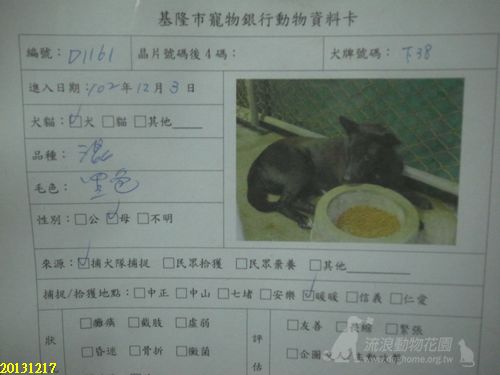 基隆市寵物銀行動物資料卡
編號：D1161 晶片號碼後4碼： 犬牌號碼：下38
進入日期：102年12月3日
犬貓：☑犬 □貓 □其他
品種：混
毛色：黑色
性別：□公 ☑母 □不明
來源：☑捕犬隊捕捉 □民眾拾獲 □民眾棄養 □其他
捕捉/拾獲地點：□中正 □中山 □七堵 □安樂 ☑暖暖 □信義 □仁愛
狀 □癱瘓 □截肢 □虛弱 評 □友善 □畏縮 □緊張
□昏迷 □骨折 □黴菌 估 □企圖
流浪動物花園
www.doghome.org.tw
20131217